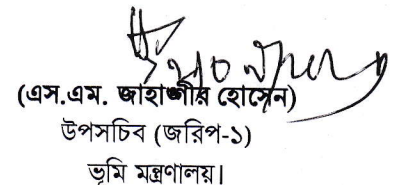 (এস.এম. জাহাঙ্গীর হোসেন)
উপসচিব (জরিপ-১)
ভূমি মন্ত্রণালয়।